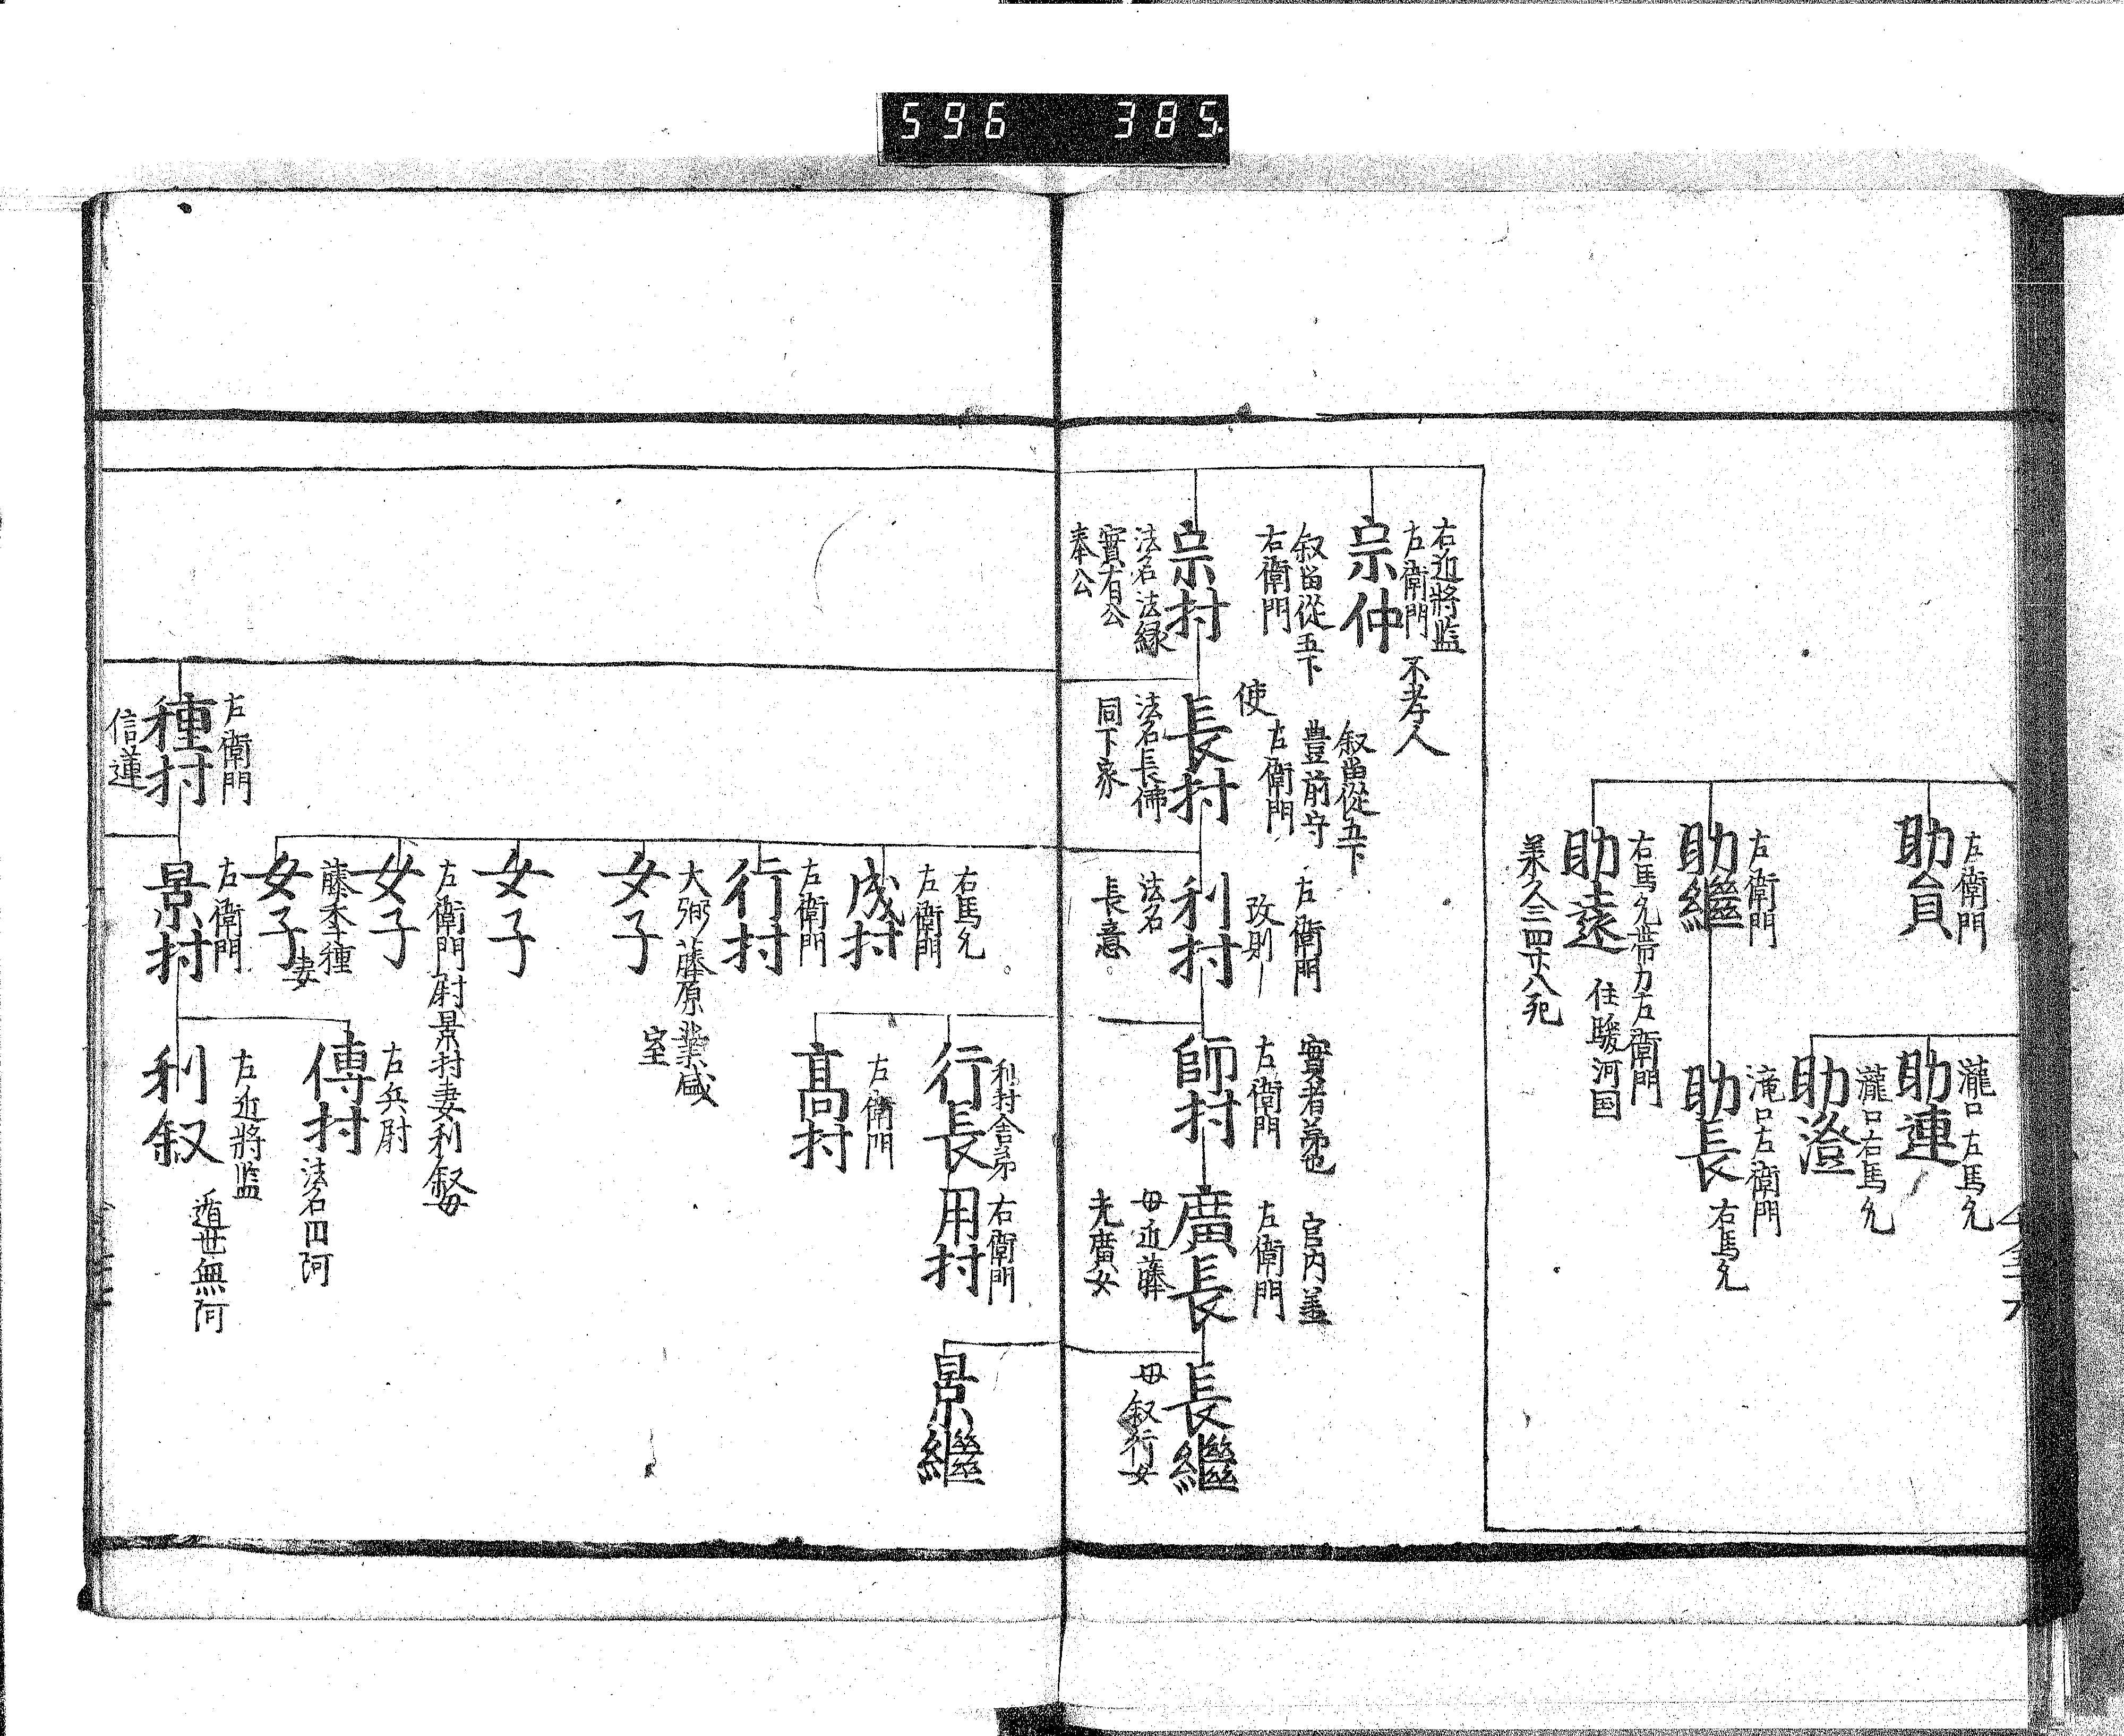 596 385
左衛門
助員
左衛門
助繼
右馬允帯刀左衛門
助遠
住駿河国
承久三四十八死
瀧口左馬允
助連
瀧口右馬允
助澄
滝口左衛門
助長
右馬允
右近將監
左衛門
不孝人
宗仲
叙留從五下
右衛門
宗村
法名法縁
實有公
奉公
叙留從五下
豊前守
左衛門
使
長村
法名長佛
同下家
左衛門
改則
利村
法名
長意
實者弟也
左衛門
師村
官内
左衛門
廣長
母近藤
光廣女
長繼
母叙行女
右馬允
左衛門
成村
左衛門
行村
大弼藤原業盛
室
女子
女子
左衛門尉景村妻利叙母
女子
藤季種
妻
女子
利村舎弟
行長
右衛門
用村
景繼
左衛門
高村
左衛門
種村
信蓮
左衛門
景村
右兵尉
傳村
法名四阿
左近將監
利叙
遁世無阿